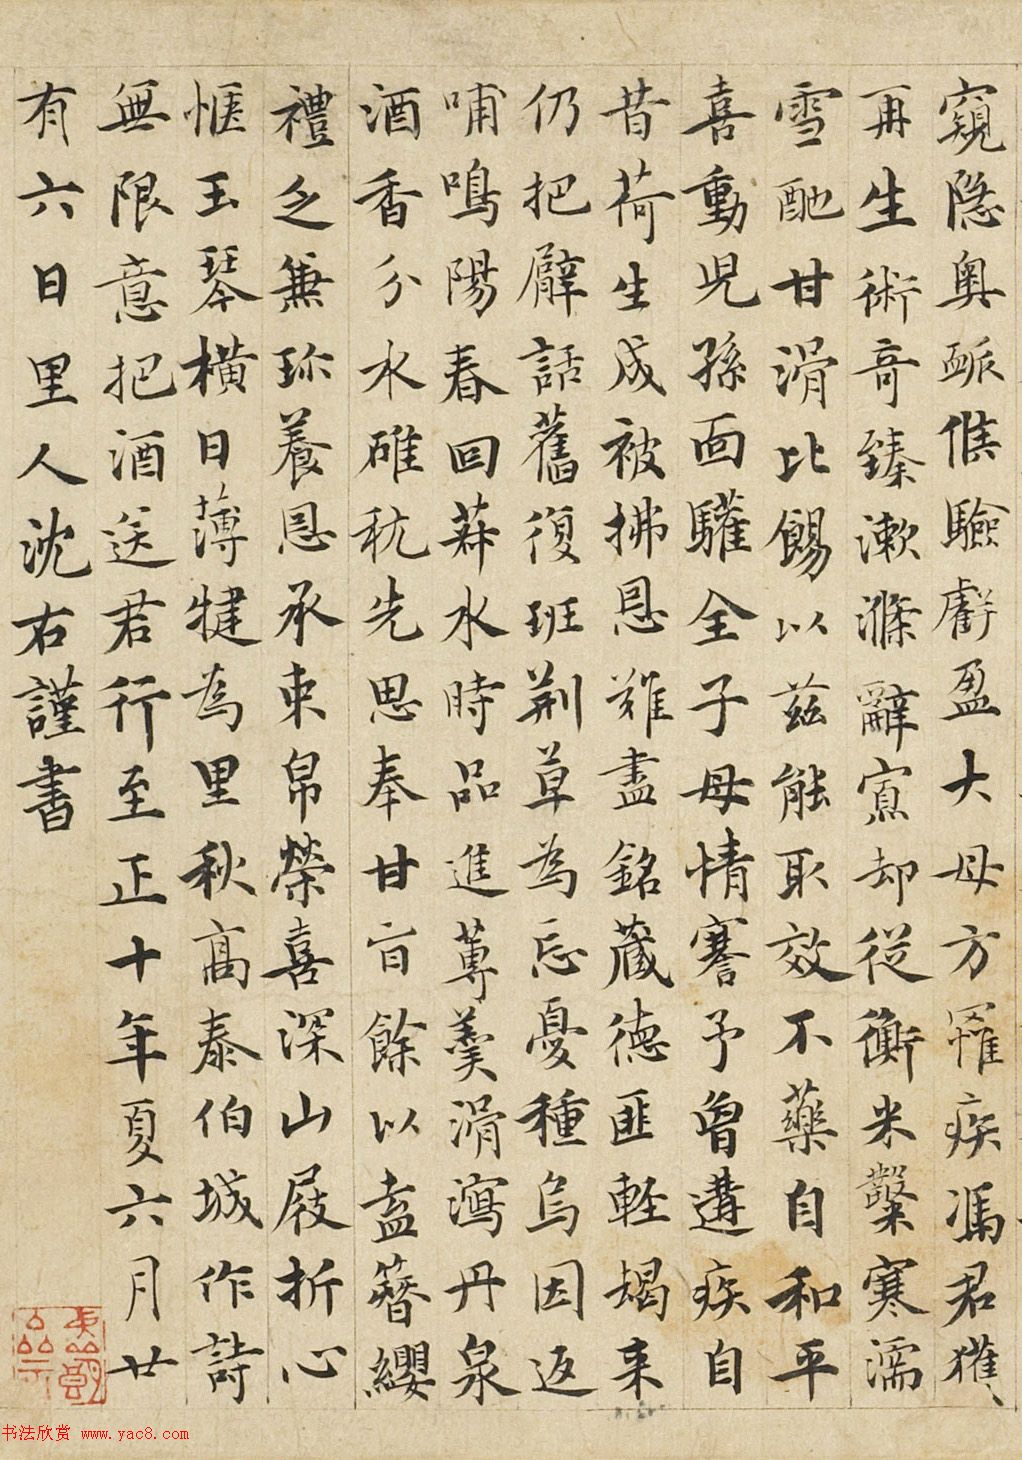 窺隐奧脈候驗虧盈大母方罹疾馮君獲
再生術奇臻漱滌辭寘却從衡米糳寒濡
雪酏甘滑比餳以兹能取效不藥自和平
喜動児孫面驩全子母情謇予曽遘疾自
昔荷生成被拂恩難盡銘藏德匪輕朅来
仍把臂話舊復班荆草為忘憂種烏因返
哺鳴陽春回莽水時品進蓴羹滑瀉丹泉
酒香分水碓秔先思奉甘旨餘以盍簪纓
禮之兼珎養恩承束帛榮喜深山屐折心
惬玉琴橫日薄揵為里秋高泰伯城作詩
無限意把酒送君行至正十年夏六月廿
有六日里人沈右謹書
书法欣赏 www.yac8.com